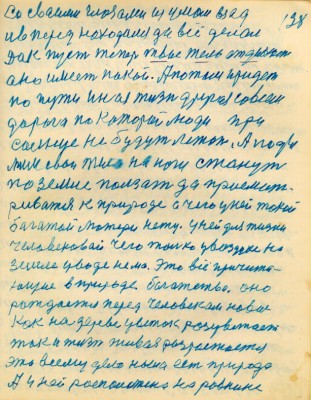 Со своими глазами и умом взад 128
и в перед находился да всё делал
Так пусть теперь твое тело отдыхает
оно имеет покой. А потом придет
по пути иная жизнь другая совсем
дорога по которой люди при
солнце не будут летом. А подн
мим свои тела на ноги станут
по земле ползат да присмат-
риватся к природе а чего у ней такой
богатой матери нету. У ней для жизни
человековай чего только увгодно на
земле и воде нема. Это всё причита-
ющие в природе богатства. оно
рождается перед человеком новые
Как на дереве цветок розцветает
так и жизн живая розростается
это всему дело наша ест природа
А у ней росположено на ровнине